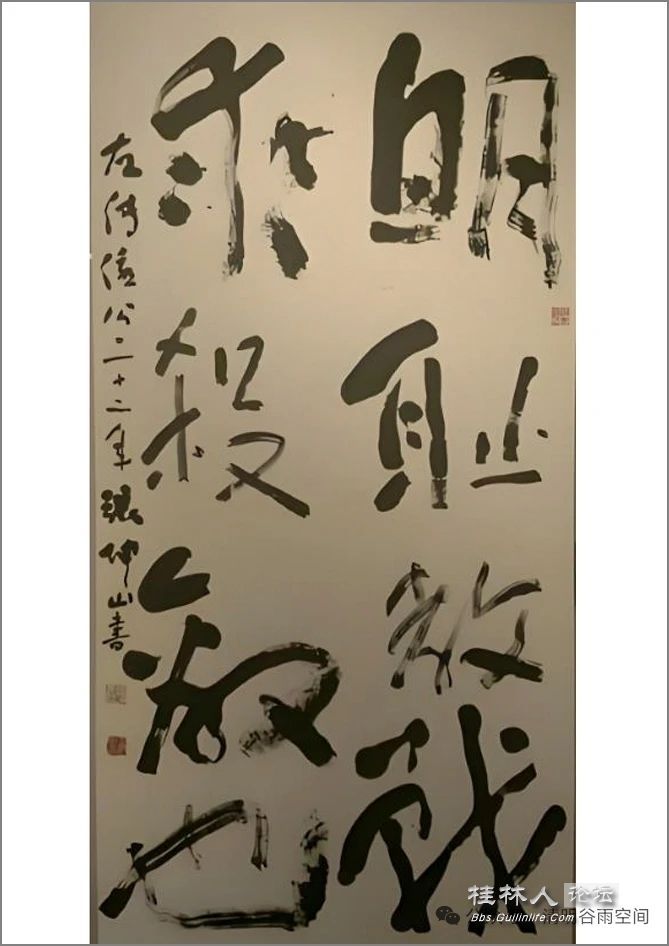 明耻教戰
求殺敵也
左傳僖公二十二年張坤山書
桂林人论坛
Bbs.Guilinlife.Com
谷雨空间